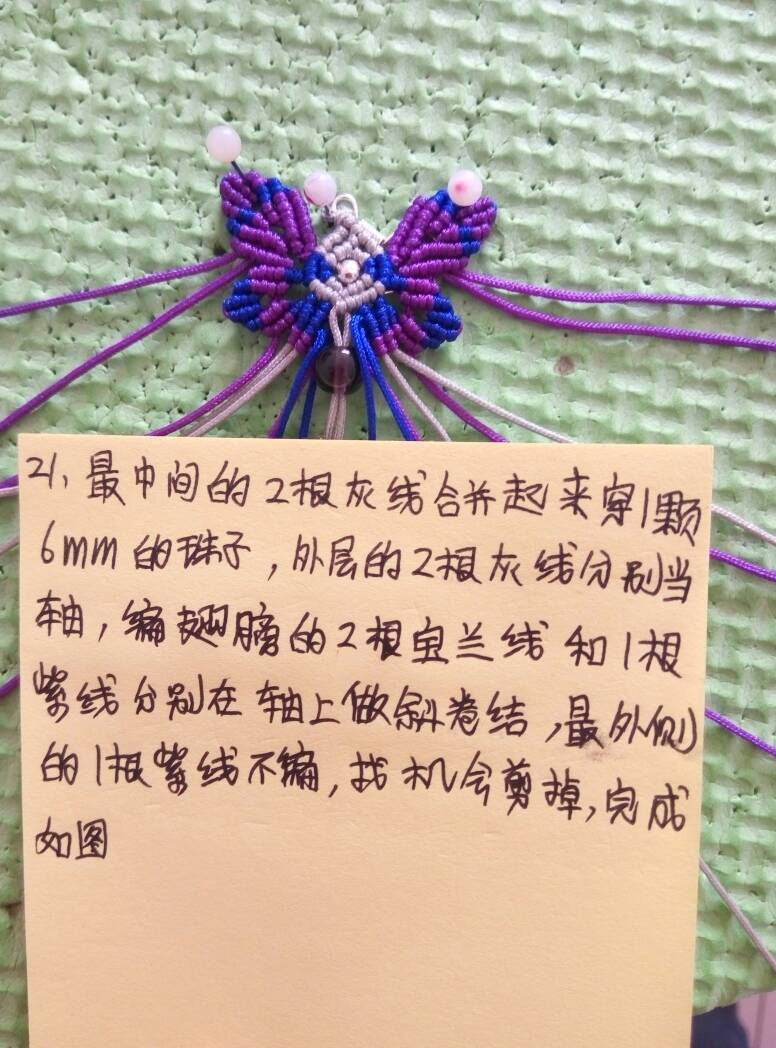 21、最中间的2根灰线合并起来穿1颗
6mm的珠子，外层的2根灰线分别当
轴，编翅膀的2根宝兰线和1根
紫线分别在轴上做斜卷结，最外侧
的1根紫线不编，找机会剪掉，完成
如图